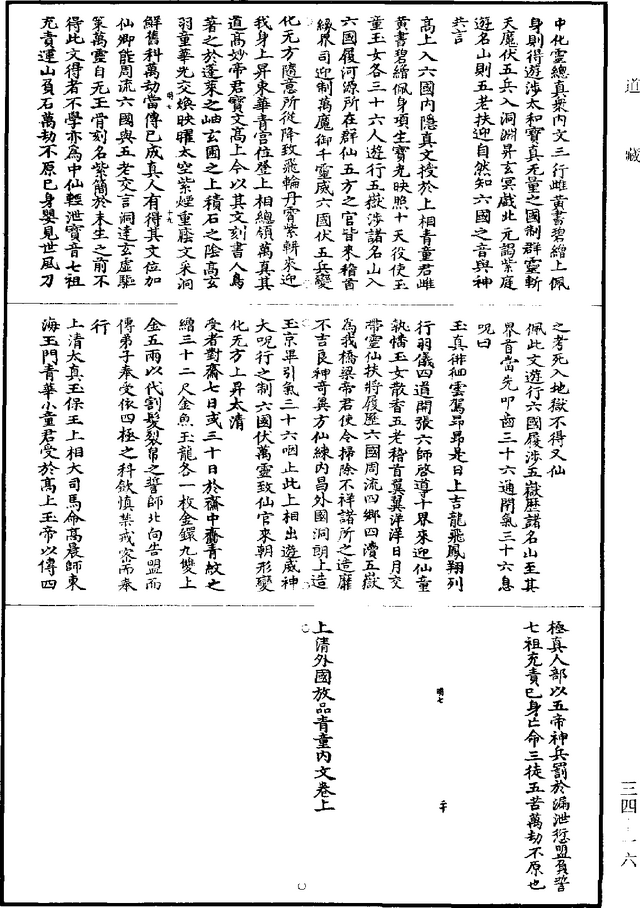 道藏
中化靈總真衆內文三行雌黃書碧繒上佩
身則得遊涉太和寶真无量之國制群靈斬
天魔伏五兵入洞淵昇玄冥戲北元謁紫庭
遊名山則五老扶迎自然知六國之音與神
共言
高上入六國內隱真文授於上相青童君雌
黃書碧繒佩身項生寶光映照十天役使玉
童玉女各三十六人遊行五嶽涉諸名山入
六國履河源所在群仙五方之官皆來稽首
緣界司迎制萬魔御千靈威六國伏五兵變
化无方隨意所從降致飛輪丹霄紫軿來迎
我身上昇東華青宮位登上相總領萬真其
道高妙帝君寶文高上令以其文刻書人鳥
著之於蓬萊之岫玄圃之上積石之陰高玄
羽童華光交煥映曜太空紫煙重蔭文采洞
鮮舊科萬劫當傳已成真人有得其文位加
仙卿能周流六國與五老交言洞達玄虛驅
策萬靈自无玉骨刻名紫簡於未生之前不
得此文得者不學亦為中仙輕泄寶音七祖
充責運山負石萬劫不原已身嬰見世風刀
之考死入地獄不得又仙
佩此文遊行六國履涉五嶽歷諸名山至其
界首當先叩齒三十六通閉氣三十六息
呪曰
玉真徘徊雲駕昂昂是日上吉龍飛鳳翔列
行羽儀四道開張六師啓導十界來迎仙童
執旛玉女散香五老稽首翼翼洋洋日月交
帶靈仙扶將履歷六國周流四鄉四瀆五嶽
為我橋梁帝君使令掃除不祥諸所之造靡
不吉良神奇異方仙練內昌外國洞朗上造
玉京畢引氣三十六咽止此上相出遊威神
大呪行之制六國伏萬靈致仙官來朝形變
化无方上昇太清
受者對齋七日或三十日於齋中齋青紋之
繒三十二尺金魚玉龍各一枚金鐶九雙上
金五兩以代割髮裂帛之誓師北向告盟而
傳弟子奉受依四極之科欽慎禁戒密而奉
行
上清太真玉保王上相大司馬命高晨師東
海玉門青華小童君受於高上玉帝以傳四
極真人部以五帝神兵罰於漏泄愆盟負誓
七祖充責已身亡命三徒五苦萬劫不原也
明七
二十
上清外國放品青童內文卷上
三四-一六